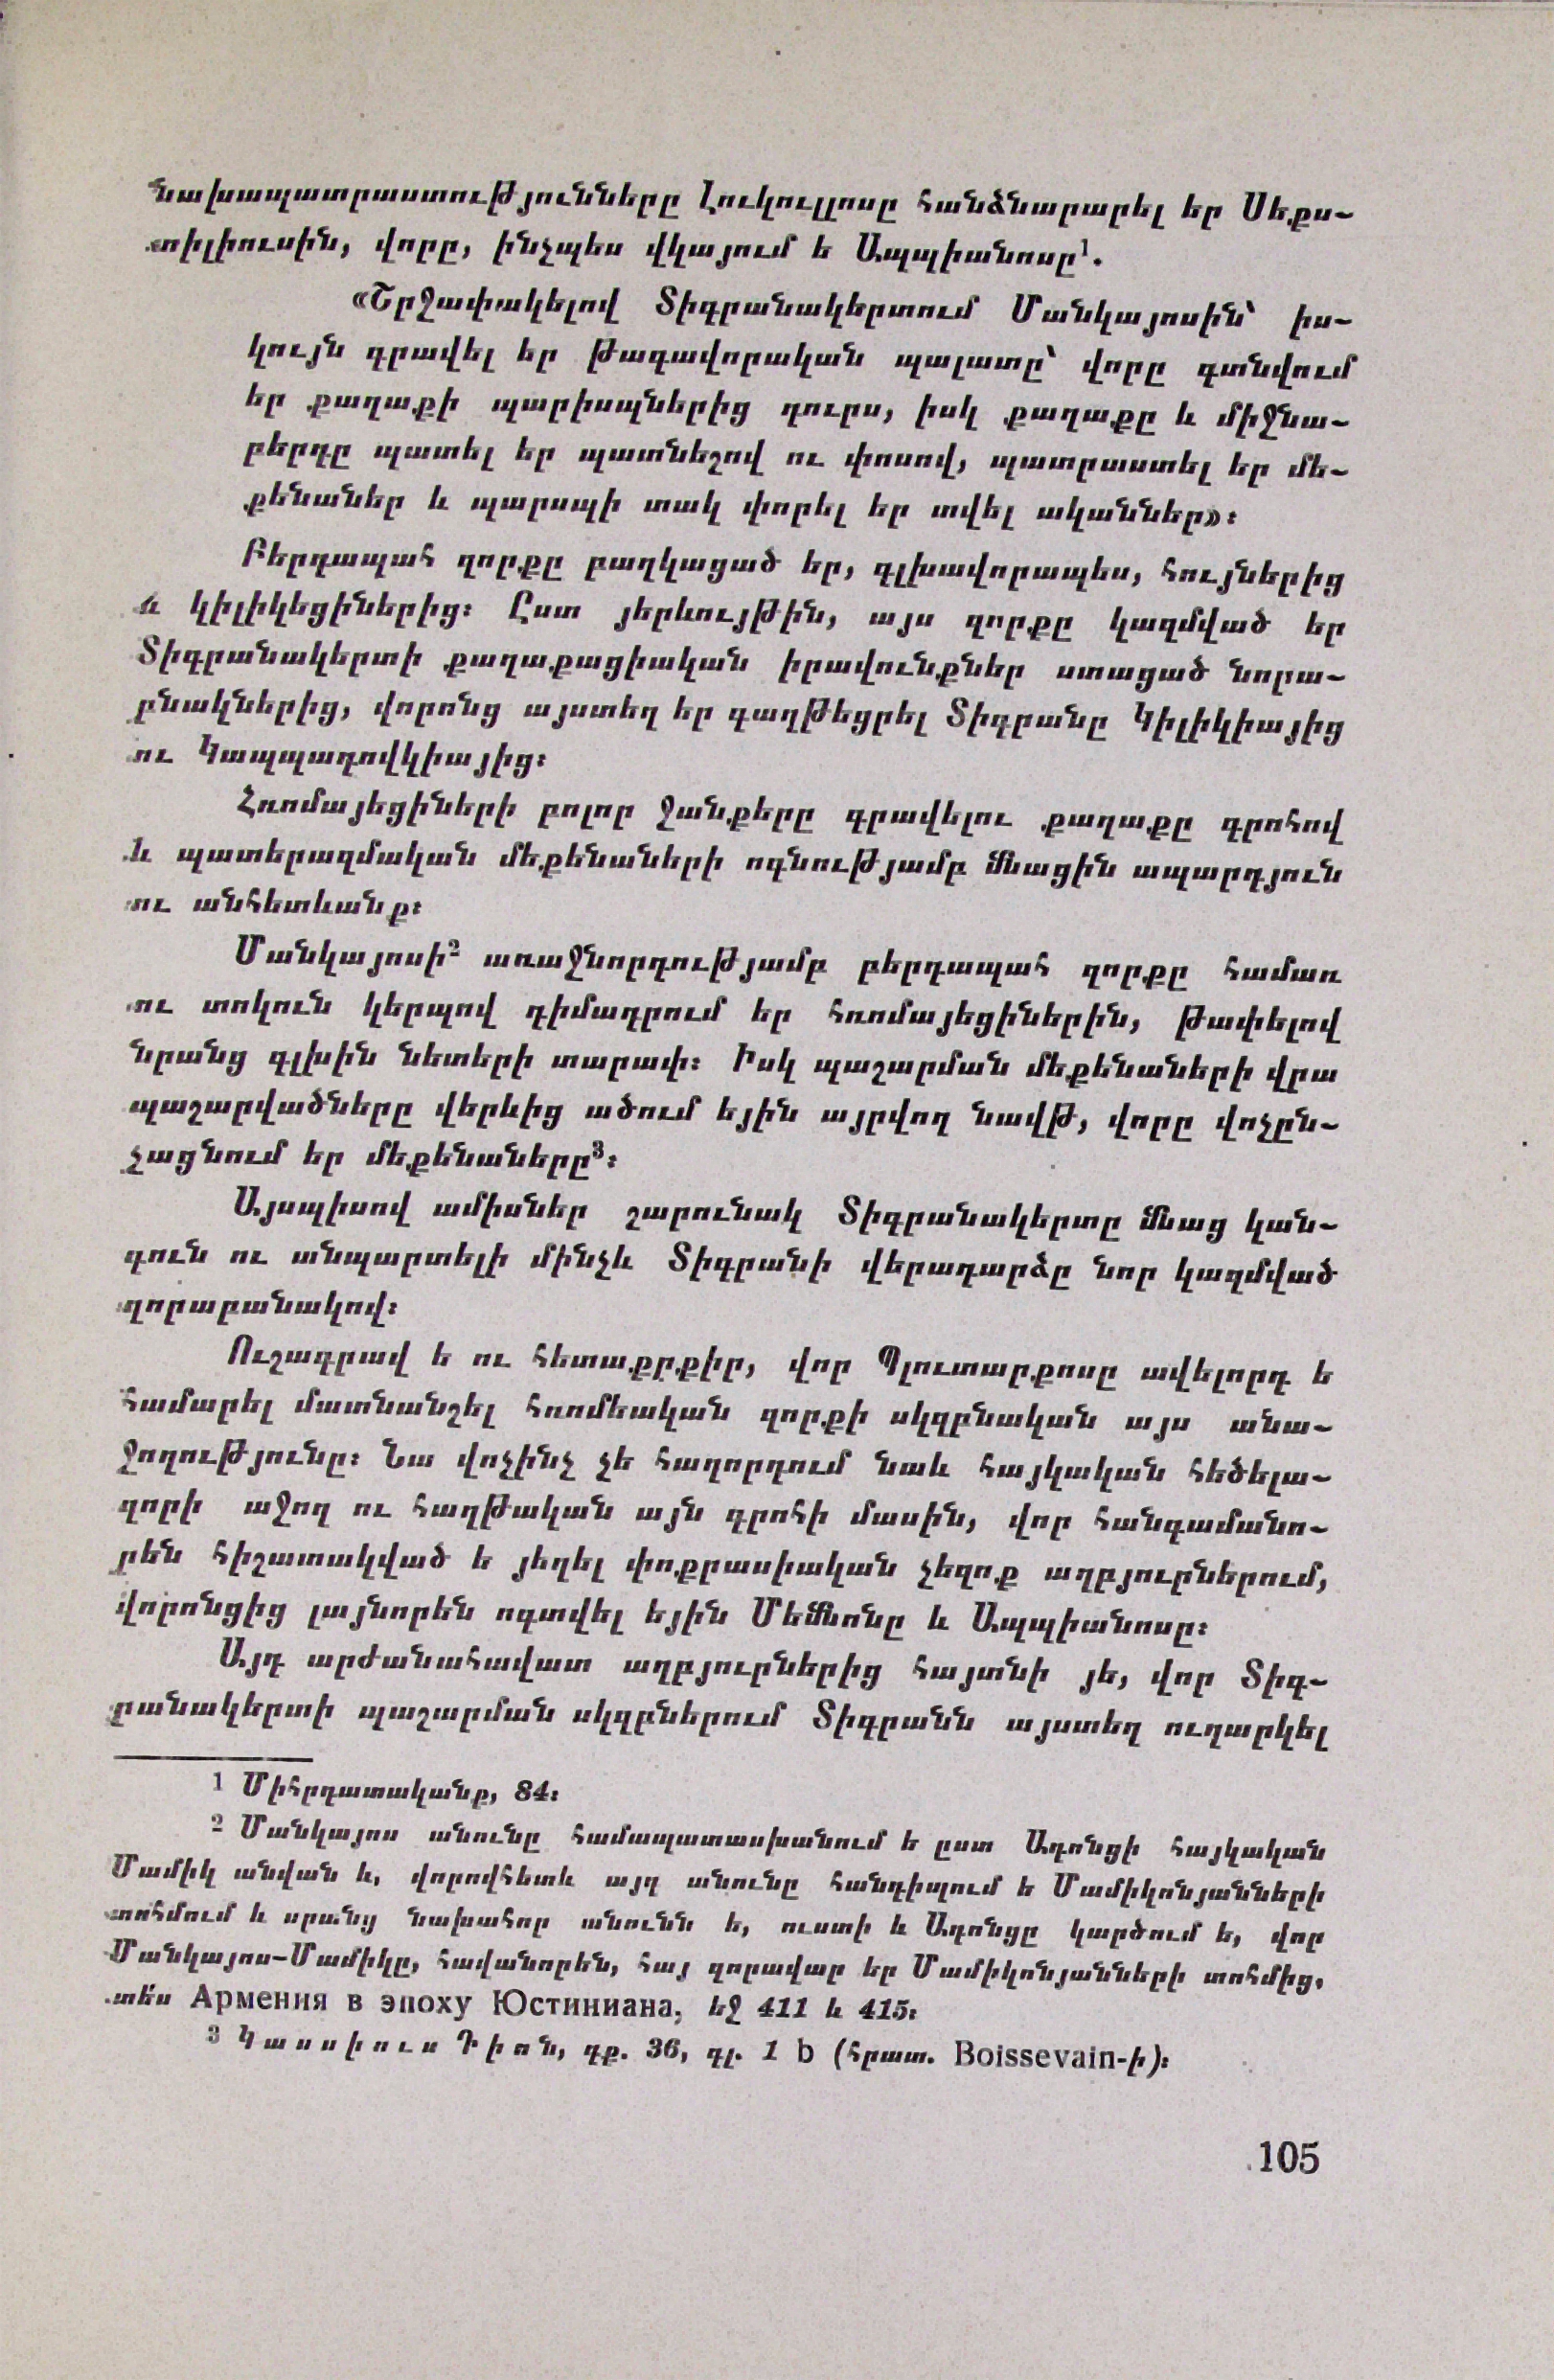 նախապատրաստությունները Լուկուլլոսը հանձնարարել եր Սեքս-
տիլիուսին, վորը, ինչպես վկայում ե Ապպիանոսը¹.
«Շրջափակելով Տիգրանակերտում Մանկայոսին՝ իս-
կույն գրավել եր թագավորական պալատը՝ վորը գտնվում
եր քաղաքի պարիսպներից դուրս, իսկ քաղաքը և միջնա-
բերդը պատել եր պատնեշով ու փոսով, պատրաստել եր մե-
քենաներ և պարսպի տակ փորել եր տվել ականներ»։
Բերդապահ զորքը բաղկացած եր, գլխավորապես, հույներից
և կիլիկեցիներից։ Ըստ յերևույթին, այս զորքը կազմված եր
Տիգրանակերտի քաղաքացիական իրավունքներ ստացած նորա-
բնակներից, վորոնց այստեղ եր գաղթեցրել Տիգրանը Կիլիկիայից
ու Կապպադովկիայից։
Հռոմայեցիների բոլոր ջանքերը գրավելու քաղաքը գրոհով
և պատերազմական մեքենաների ոգնությամբ մնացին ապարդյուն
ու անհետևանք։
Մանկայոսի² առաջնորդությամբ բերդապահ զորքը համառ
ու տոկուն կերպով դիմադրում եր հռոմայեցիներին, թափելով
նրանց գլխին նետերի տարափ։ Իսկ պաշարման մեքենաների վրա
պաշարվածները վերևից ածում եյին այրվող նավթ, վորը վոչըն-
չացնում եր մեքենաները³։
Այսպիսով ամիսներ շարունակ Տիգրանակերտը մնաց կան-
գուն ու անպարտելի մինչև Տիգրանի վերադարձը նոր կազմված
զորաբանակով։
Ուշադրավ ե ու հետաքրքիր, վոր Պլուտարքոսը ավելորդ ե
համարել մատնանշել հռոմեական զորքի սկզբնական այս անա-
ջողությունը։ Նա վոչինչ չե հաղորդում նաև հայկական հեծելա-
զորի աջող ու հաղթական այն գրոհի մասին, վոր հանգամանո-
րեն հիշատակված ե յեղել փոքրասիական չեզոք աղբյուրներում,
վորոնցից լայնորեն ոգտվել եյին Մեմնոնը և Ապպիանոսը։
Այդ արժանահավատ աղբյուրներից հայտնի յե, վոր Տիգ-
րանակերտի պաշարման սկզբներում Տիգրանն այստեղ ուղարկել
1 Միհրդատականք, 84։
2 Մանկայոս անունը համապատասխանում ե ըստ Ադոնցի հայկական
Մամիկ անվան և, վորովհետև այդ անունը հանդիպում ե Մամիկոնյանների
տոհմում և սրանց նախահոր անունն ե, ուստի և Ադոնցը կարծում ե, վոր
Մանկայոս-Մամիկը, հավանորեն, հայ զորավար եր Մամիկոնյանների տոհմից,
տե՛ս Армения в эпоху Юстиниана, եջ 411 և 415։
3 Կասսիուս Դիոն, գք. 36, գլ. 1 b (հրատ. Boissevain-ի)։
105